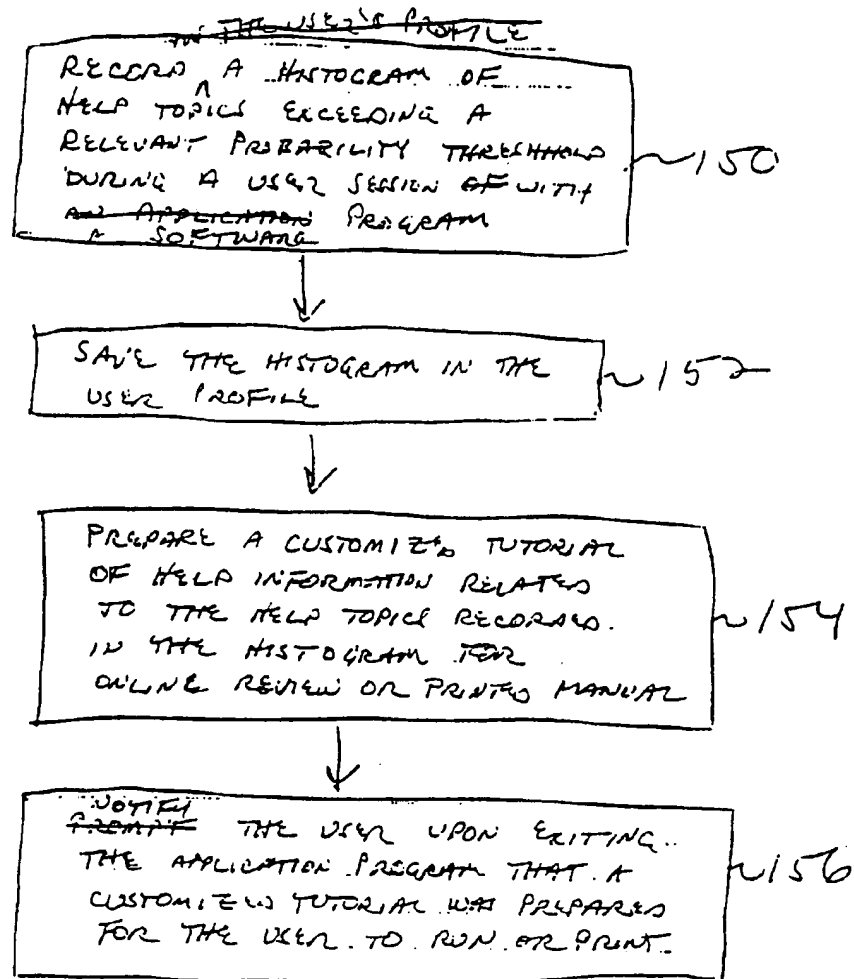 in the user's profile
RECORD ^ A HISTOGRAM OF
HELP TOPICS EXCEEDING A
RELEVANT PROBABILITY THRESHHOLD
DURING A USER SESSION OF WITH
AN APPLICATION PROGRAM
A SOFTWARE
~150
SAVE THE HISTOGRAM IN THE
USER PROFILE
~152
PREPARE A CUSTOMIZED TUTORIAL
OF HELP INFORMATION RELATED
TO THE HELP TOPICS RECORDED
IN THE HISTOGRAM FOR
ONLINE REVIEW OR PRINTED MANUAL
~154
NOTIFY
PROMPT THE USER UPON EXITING
THE APPLICATION PROGRAM THAT A
CUSTOMIZED TUTORIAL WAS PREPARED
FOR THE USER TO RUN OR PRINT
~156